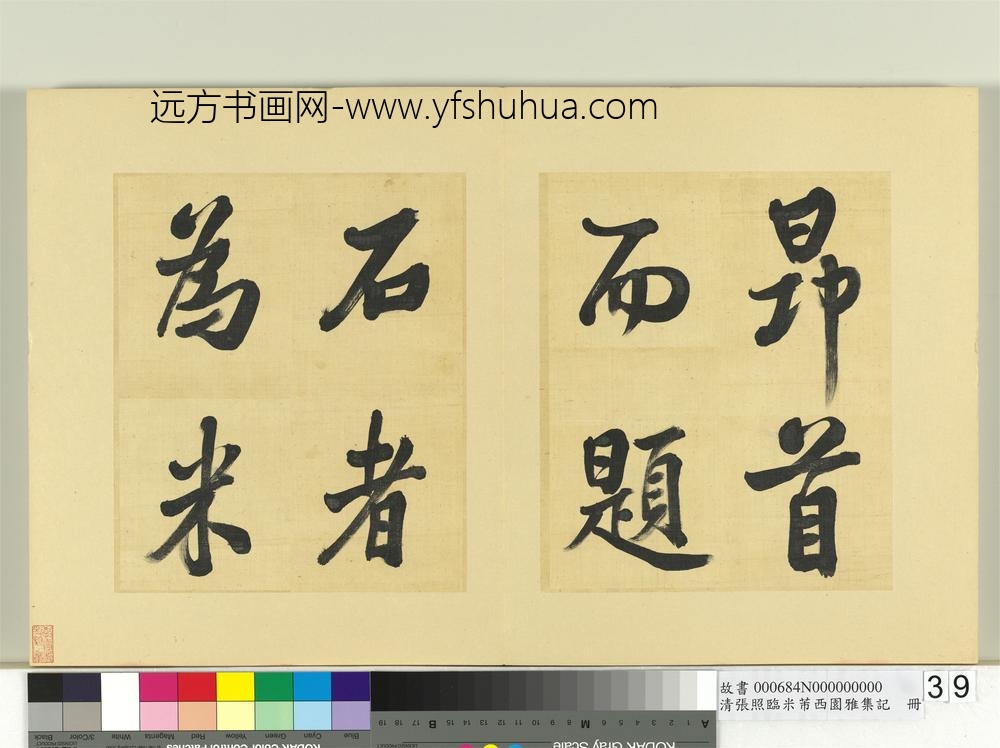 远方书画网-www.yfshuhua.com
昂首
而題
石者
為米
故書 000684N000000000
清張照臨米芾西園雅集記 冊
39
Black
3/Color
White
Magenta
Red
Yellow
Green
Cyan
Blue
KODAK Color Control Patches
KODAK Gray Scale
A 1 2 3 4 5 6 M 8 9 10 11 12 13 14 15 B 17 18 19